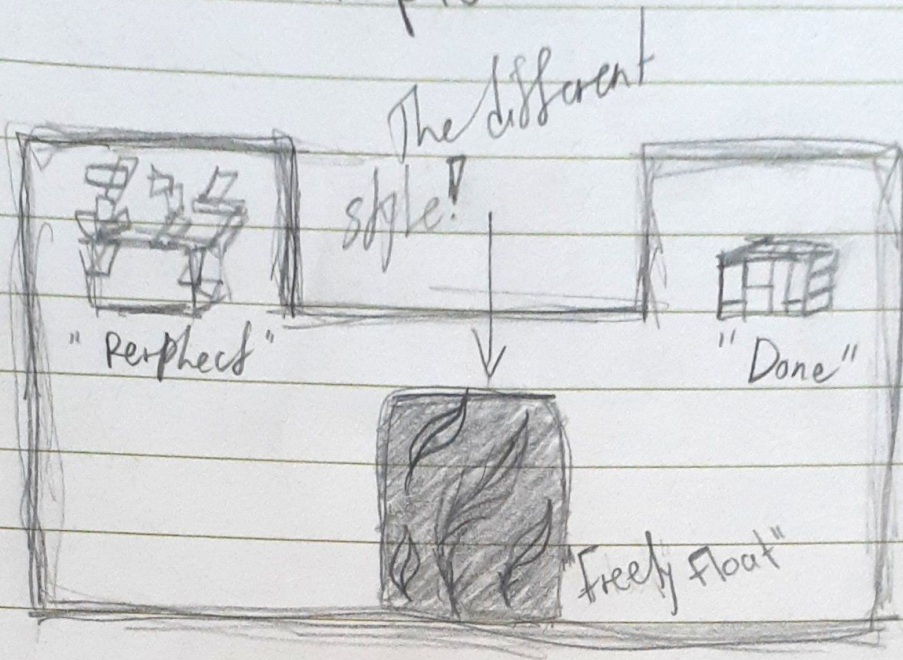 The different
style!
"Perphect"
"Done"
"Freely Float"